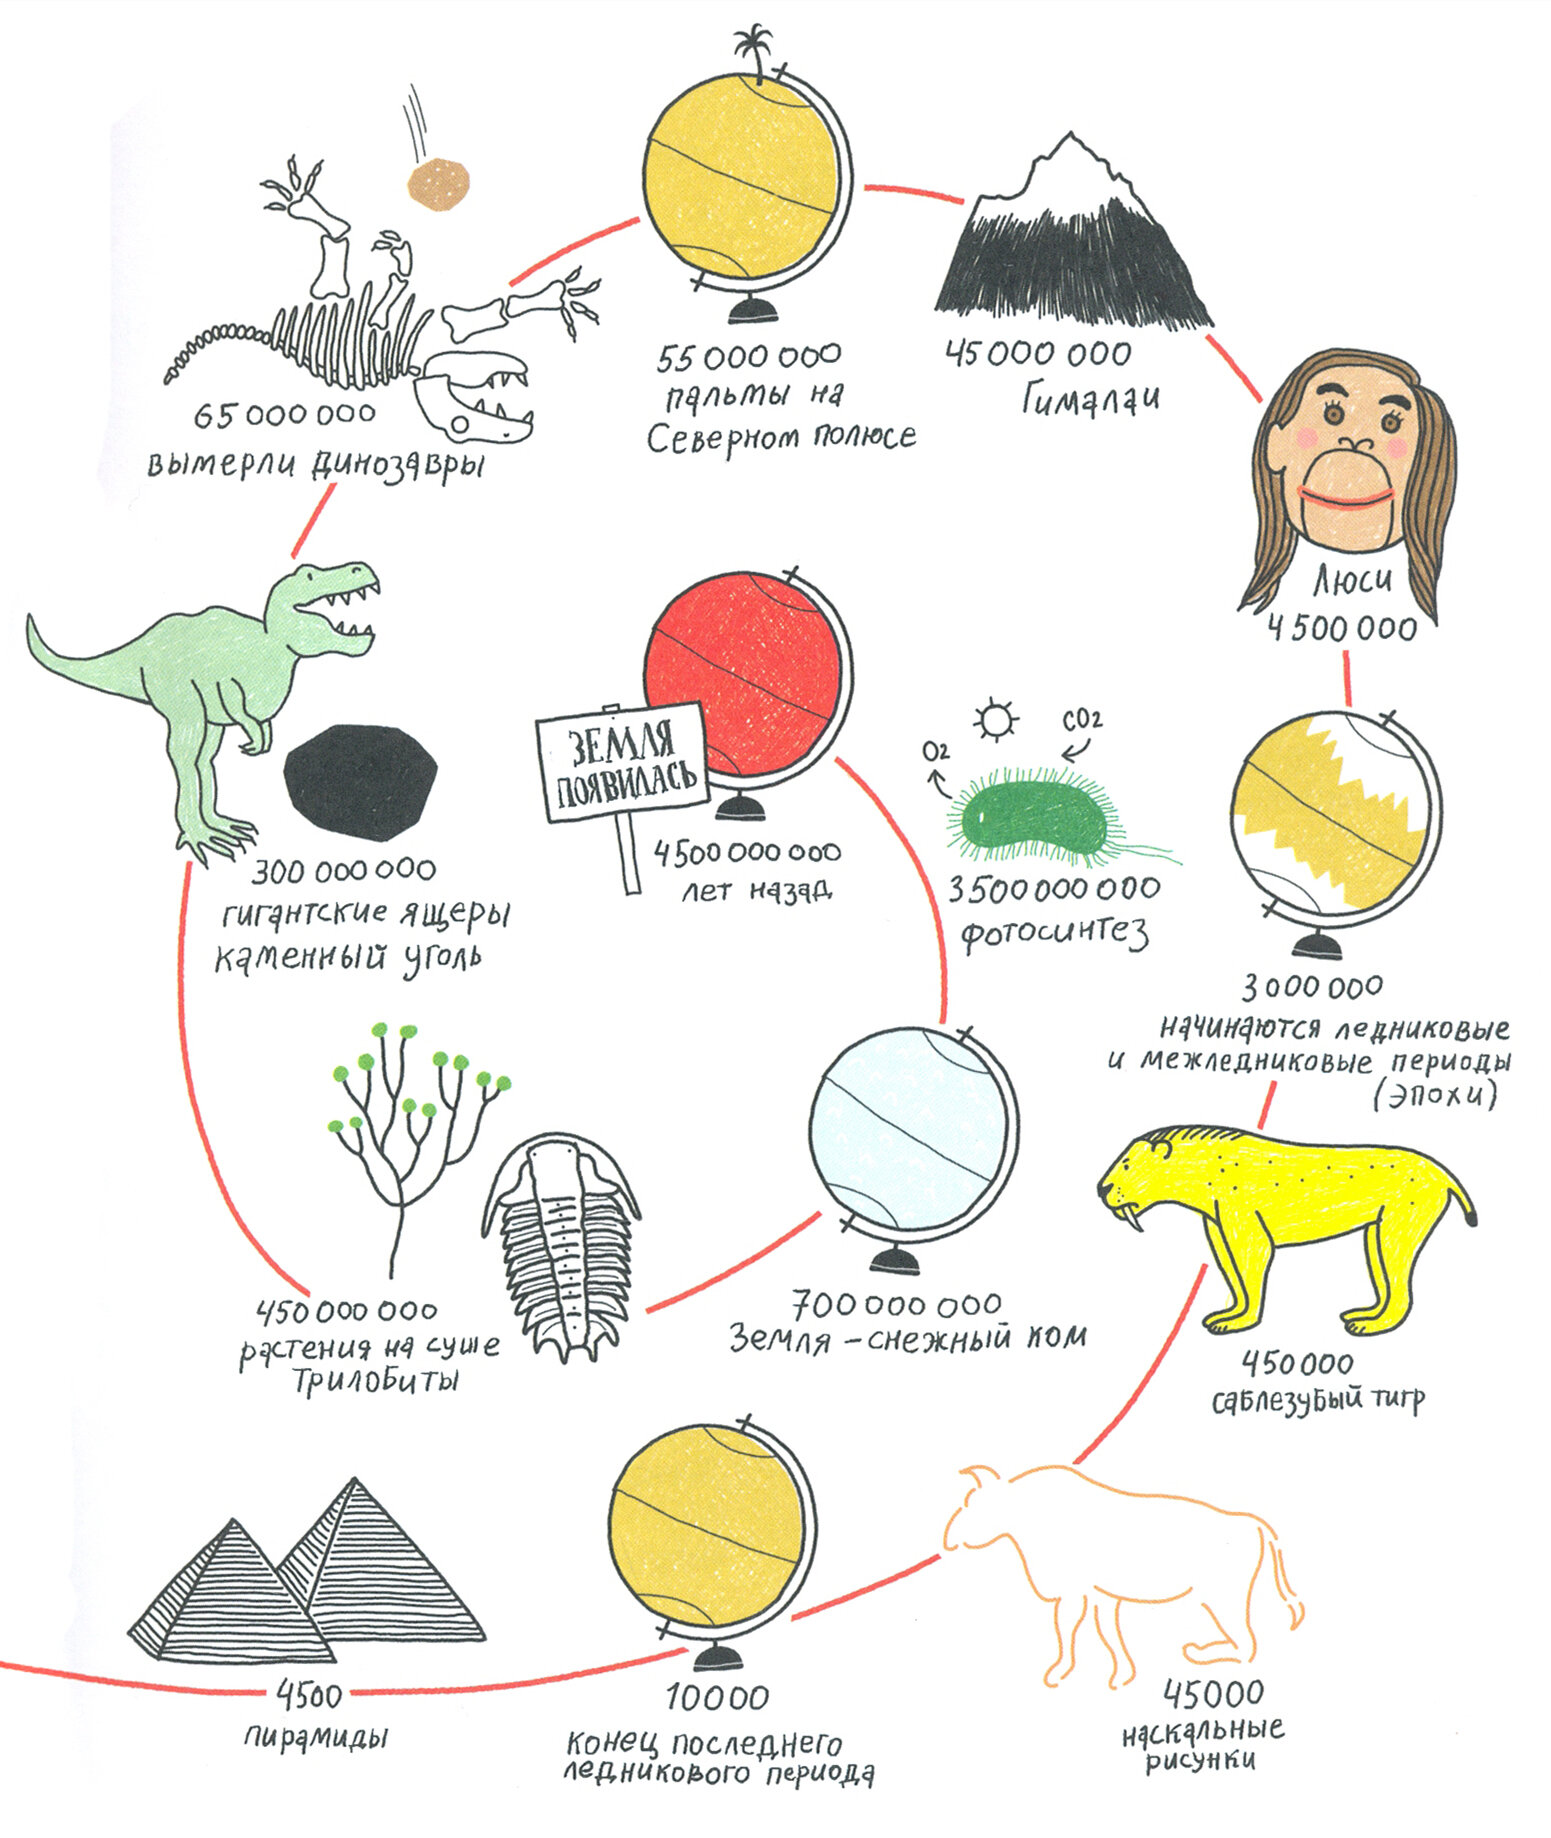 55 000 000
пальмы на
Северном полюсе
45 000 000
Гималаи
65 000 000
вымерли динозавры
Люси
4 500 000
ЗЕМЛЯ
ПОЯВИЛАСЬ
4500 000 000
лет назад
O2
CO2
3 500 000 000
фотосинтез
300 000 000
гигантские ящеры
каменный уголь
3 000 000
начинаются ледниковые
и межледниковые периоды
(эпохи)
450 000 000
растения на суше
Трилобиты
700 000 000
Земля – снежный ком
450 000
саблезубый тигр
4500
пирамиды
10 000
конец последнего
ледникового периода
45000
наскальные
рисунки